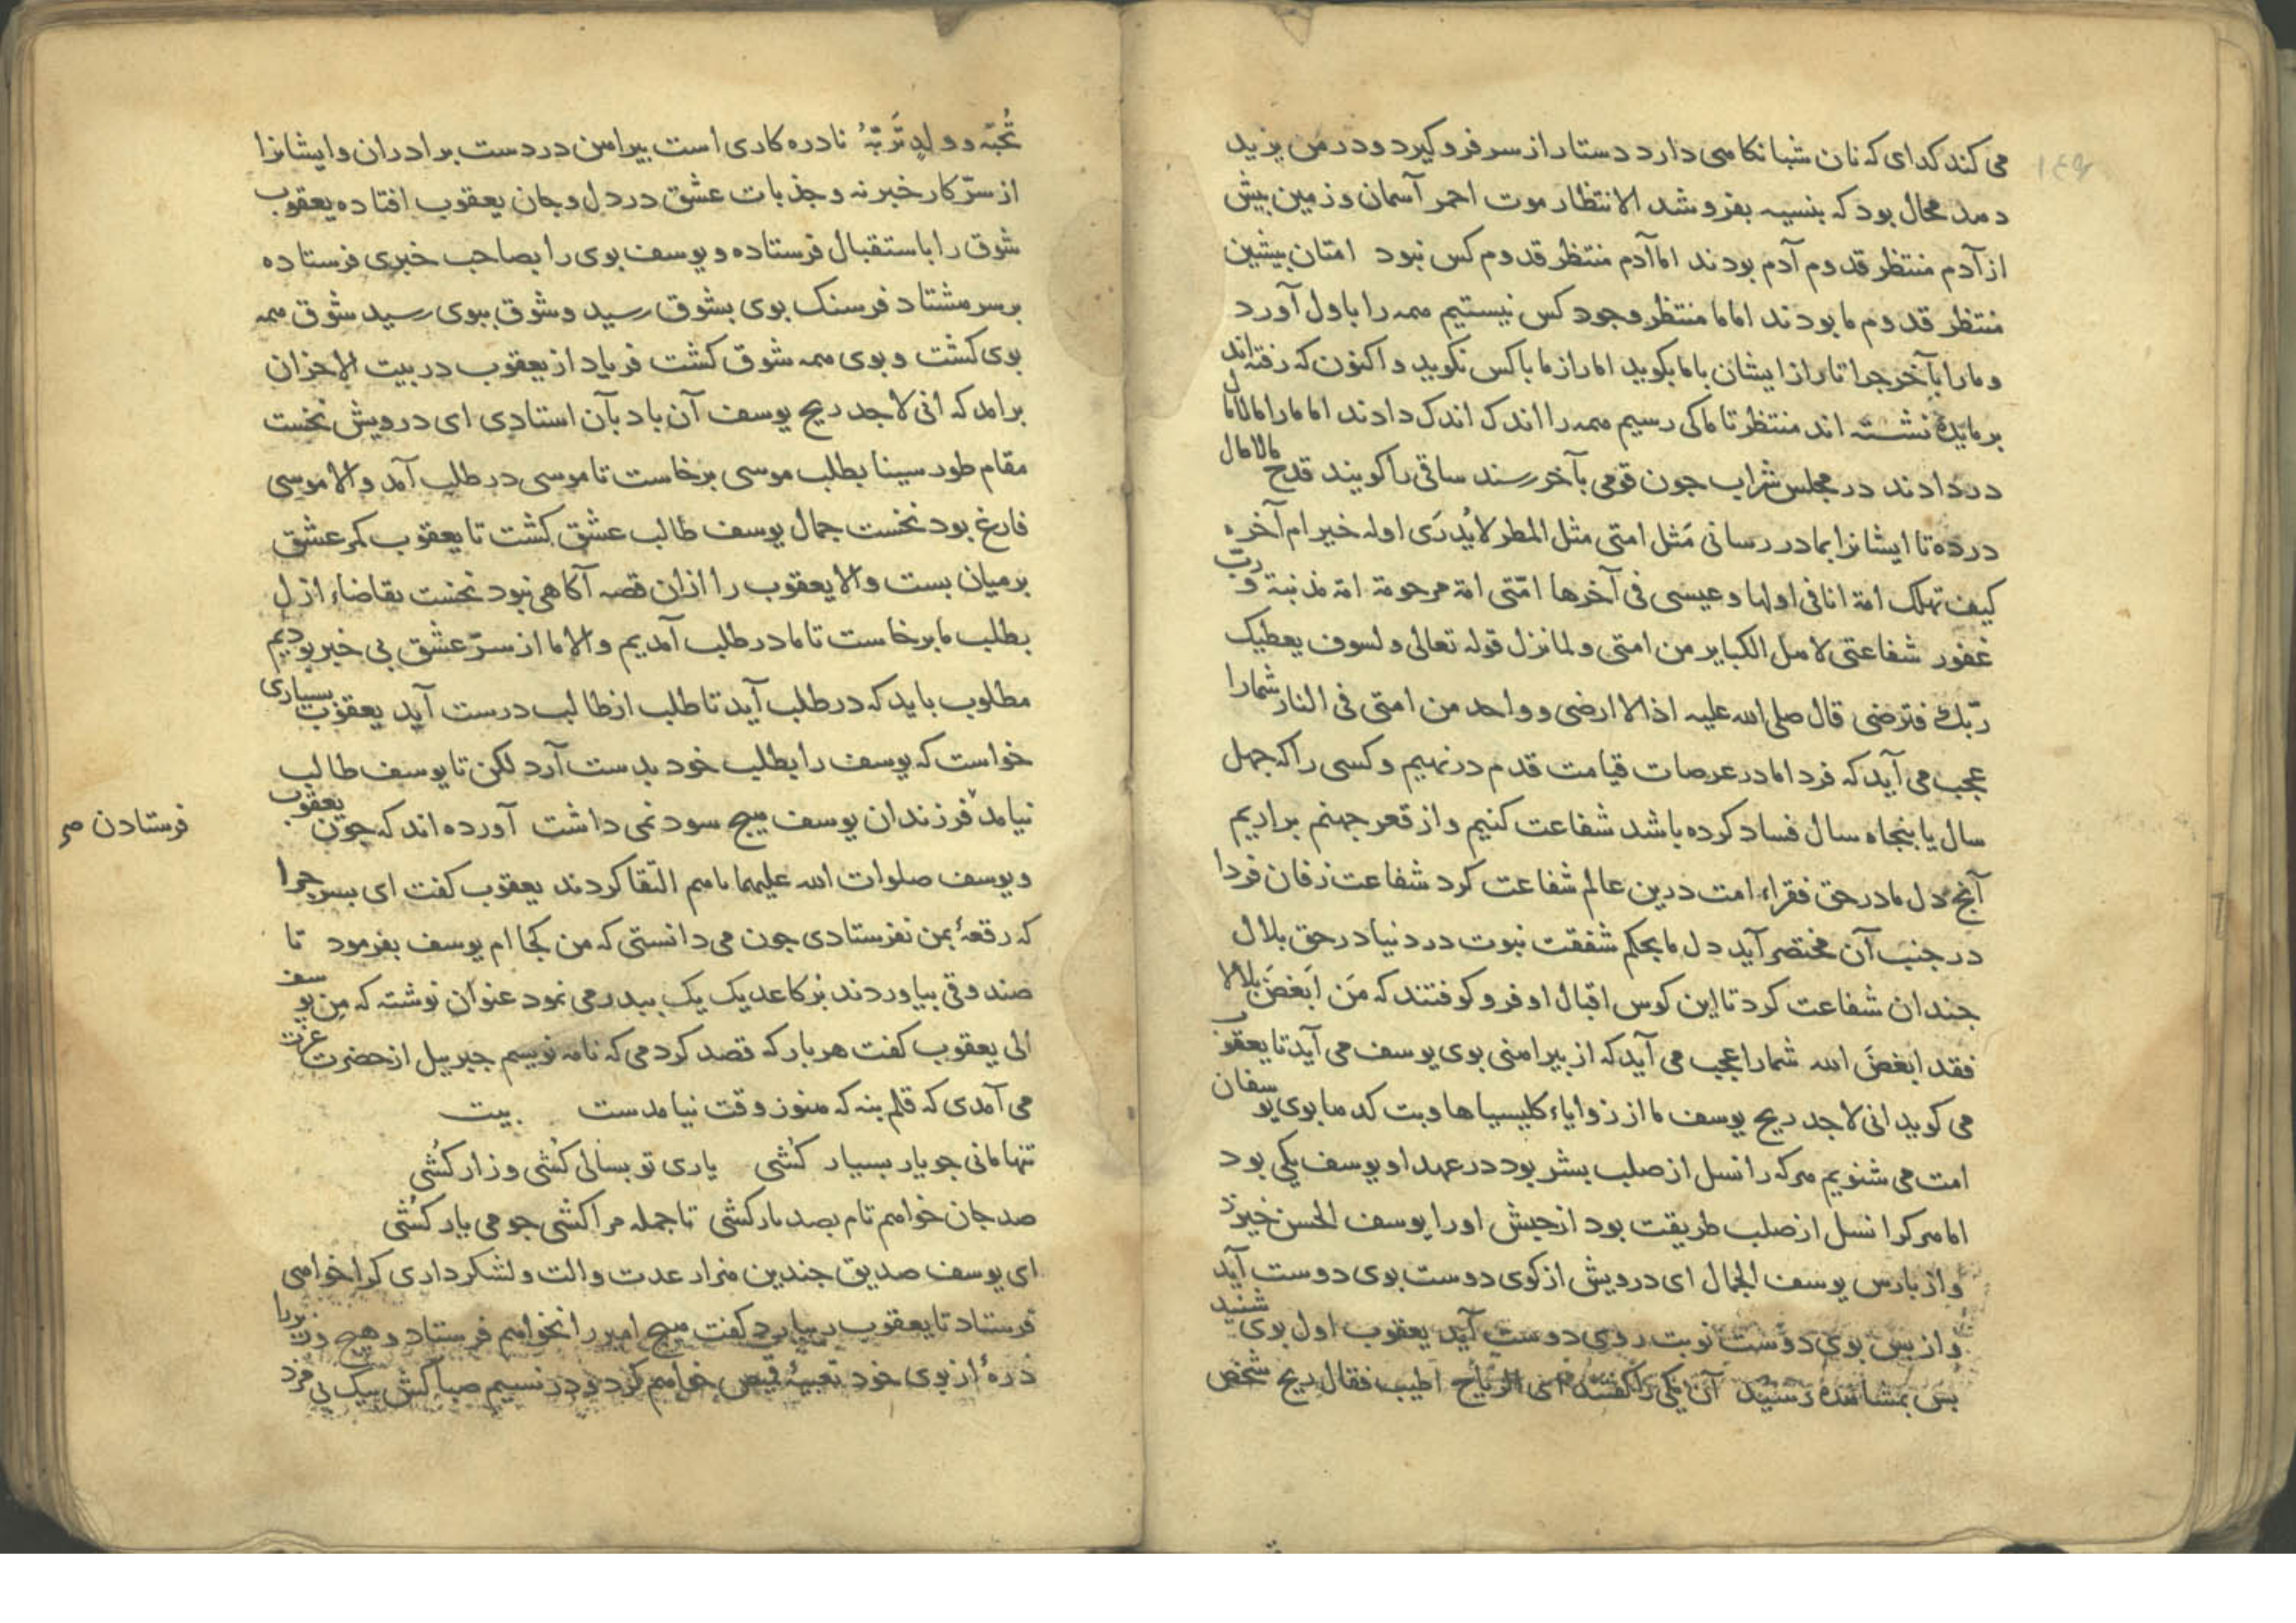 می کند کدای که نان شبانکامی دارد دستار از سر فرو کیرد و در من یزید
دمد محال بود که بنسیه بفروشد الانتظار موت احمر آسمان و زمین بیش
از آدم منتظر قدوم آدم بودند اما آدم منتظر قدوم کس نبود امتان بیشین
منتظر قدوم ما بودند اما ما منتظر وجود کس نیستیم ممه را باول آورد
و ما را بآخر جرا تا راز ایشان با ما بکوید اما راز ما با کس نکوید و اکنون که رفته اند
بر مایدهٔ نشسته اند منتظر تا ما کی رسیم ممه را اندک اندک دادند اما ما را مالامال
در دادند در مجلس شراب جون قومی بآخر رسند ساقی را کویند قدح مالامال
در ده تا ایشانرا بما در رسانی مَثل امتی مثل المطر لا یُدرَی اوله خیر ام آخره
کیف تهلک امة انا فی اولها و عیسی فی آخرها امّتی امة مرحومة امة مذنبة و ربّ
غفور شفاعتی لامل الکبایر من امتی و لما نزل قوله تعالی و لسوف یعطیک
ربّک فترضی قال صلی الله علیه اذا لا ارضی و واحد من امتی فی النار شما را
عجب می آید که فردا ما در عرصات قیامت قدم در نهیم و کسی را که جهل
سال یا بنجاه سال فساد کرده باشد شفاعت کنیم و از قعر جهنم برآریم
آنج دل ما در حق فقراء امت درین عالم شفاعت کرد شفاعت زفان فردا
در جنب آن مختصر آید دل ما بحکم شفقت نبوت در دنیا در حق بلال
جندان شفاعت کرد تا این کوس اقبال او فرو کوفتند که مَن اَبغضَ بلالا
فقد ابغضَ الله شما را عجب می آید که از بیرامنی بوی یوسف می آید تا یعقوب
می کوید انی لاجد ریح یوسف ما از زوایاء کلیسیاها و بت کدما بوی یوسفان
امت می شنویم مرکه را نسل از صلب بشر بود در عهد او یوسف یکی بود
اما مرکرا نسل از صلب طریقت بود از جبش او را یوسف الحسن خیزد
و از بارس یوسف الجمال ای درویش از کوی دوست بوی دوست آید
و از بس بوی دوست نوبت روی دوست آید یعقوب اول بوی شنید
بس بمشامده رسید آن یکی را کفتند ای الریاح اطیب فقال ریح شخص
تُحبّه و ولدٍ تَربّهُ نادره کاری است بیرامن در دست برادران و ایشانرا
از سرّ کار خبر نه و جذبات عشق در دل و جان یعقوب افتاده یعقوب
شوق را باستقبال فرستاده و یوسف بوی را بصاحب خبری فرستاده
بر سر مشتاد فرسنک بوی بشوق رسید و شوق ببوی رسید شوق ممه
بوی کشت و بوی ممه شوق کشت فریاد از یعقوب در بیت الاحزان
برامد که انی لاجد ریح یوسف آن باد بآن استادی ای درویش نخست
مقام طور سینا بطلب موسی برخاست تا موسی در طلب آمد و الا موسی
فارغ بود نخست جمال یوسف طالب عشق کشت تا یعقوب کمر عشق
بر میان بست و الا یعقوب را ازان قصه آکاهی نبود نخست تقاضاء ازل
بطلب ما برخاست تا ما در طلب آمدیم و الا ما از سرّ عشق بی خبر بودیم
مطلوب باید که در طلب آید تا طلب از طالب درست آید یعقوب بسیاری
خواست که یوسف را بطلب خود بدست آرد لکن تا یوسف طالب
نیامد فرزندان یوسف میج سود نمی داشت آورده اند که جون یعقوب
فرستادن صح
و یوسف صلوات الله علیهما بامم التقا کردند یعقوب کفت ای بسر جرا
که رقعهٔ بمن نفرستادی جون می دانستی که من کجا ام یوسف بفرمود تا
صندوقی بیاوردند بر کاغد یک یک ببدر می نمود عنوان نوشته که من یوسف
الی یعقوب کفت هر بار که قصد کردمی که نامه نویسم جبریل از حضرت عزت
می آمدی که قلم بنه که منوز وقت نیامدست بیت
تنها مانی جو یار بسیار کُشی یاری تو بسالی کُشی و زار کُشی
صد جان خوامم تام بصد بار کشی تا جمله مرا کشی جو می یار کُشی
ای یوسف صدیق جندین مزار عدت و الت و لشکر داری کرا خوامی
فرستاد تا یعقوب را بیارد کفت میج امیر را نخوامم فرستاد و هیج وزیر را
ذرهٔ از بوی خود تعبیهٔ قمیص خوامم کرد و در نسیم صبا کش بیک بی مزد